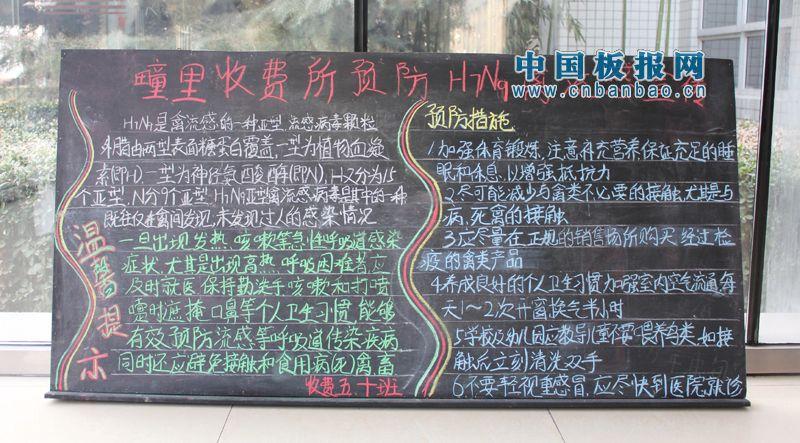 疃里收费所预防H7N9
中国板报网
www.cnbanbao.cn
H7N9是禽流感的一种亚型,流感病毒颗粒
外膜由两型表面糖蛋白覆盖,一型为植物血凝
素(即H)一型为神经氨酸酶(即N),H又分为15
个亚型,N分9个亚型,H7N9亚型禽流感病毒是其中的一种
既往仅在禽间发现,未发现过人的感染情况
一旦出现发热、咳嗽等急性呼吸道感染
症状,尤其是出现高热、呼吸困难者应
及时就医,保持勤洗手咳嗽和打喷
嚏时遮掩口鼻等个人卫生习惯,能够
有效预防流感等呼吸道传染疾病
同时还应避免接触和食用病(死)禽畜
收费五.十班
温馨提示
预防措施
1加强体育锻炼,注意补充营养保证充足的睡
眠和休息,以增强抵抗力
2.尽可能减少与禽类不必要的接触,尤其是与
病,死禽的接触
3.应尽量在正规的销售场所购买经过检
疫的禽类产品
4.养成良好的个人卫生习惯加强室内空气流通每
天1~2次开窗换气半小时
5学校及幼儿园应教导儿童不要喂养禽类,如接
触后立刻清洗双手
6.不要轻视重感冒,应尽快到医院就诊